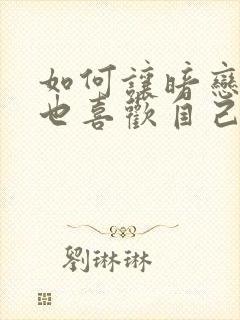 如何讓暗戀
也喜歡自己
劉琳琳